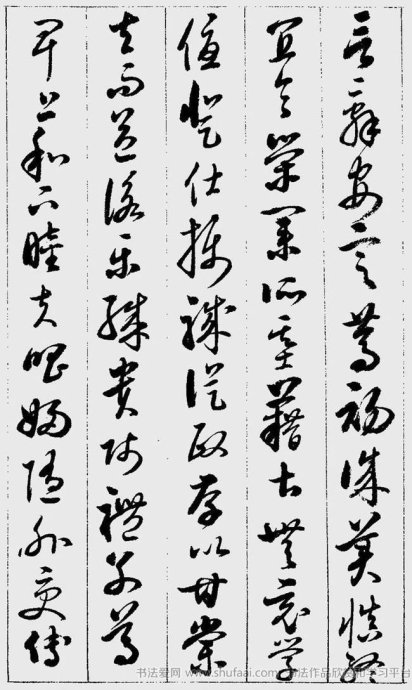 言辭安定篤初誠美慎終
宜令榮業所基籍甚無竟學
優登仕攝職從政存以甘棠
去而益詠樂殊貴賤禮別尊
卑上和下睦夫唱婦隨外受傅
书法爱网 www.shufaai.com 书法作品欣赏和学习平台